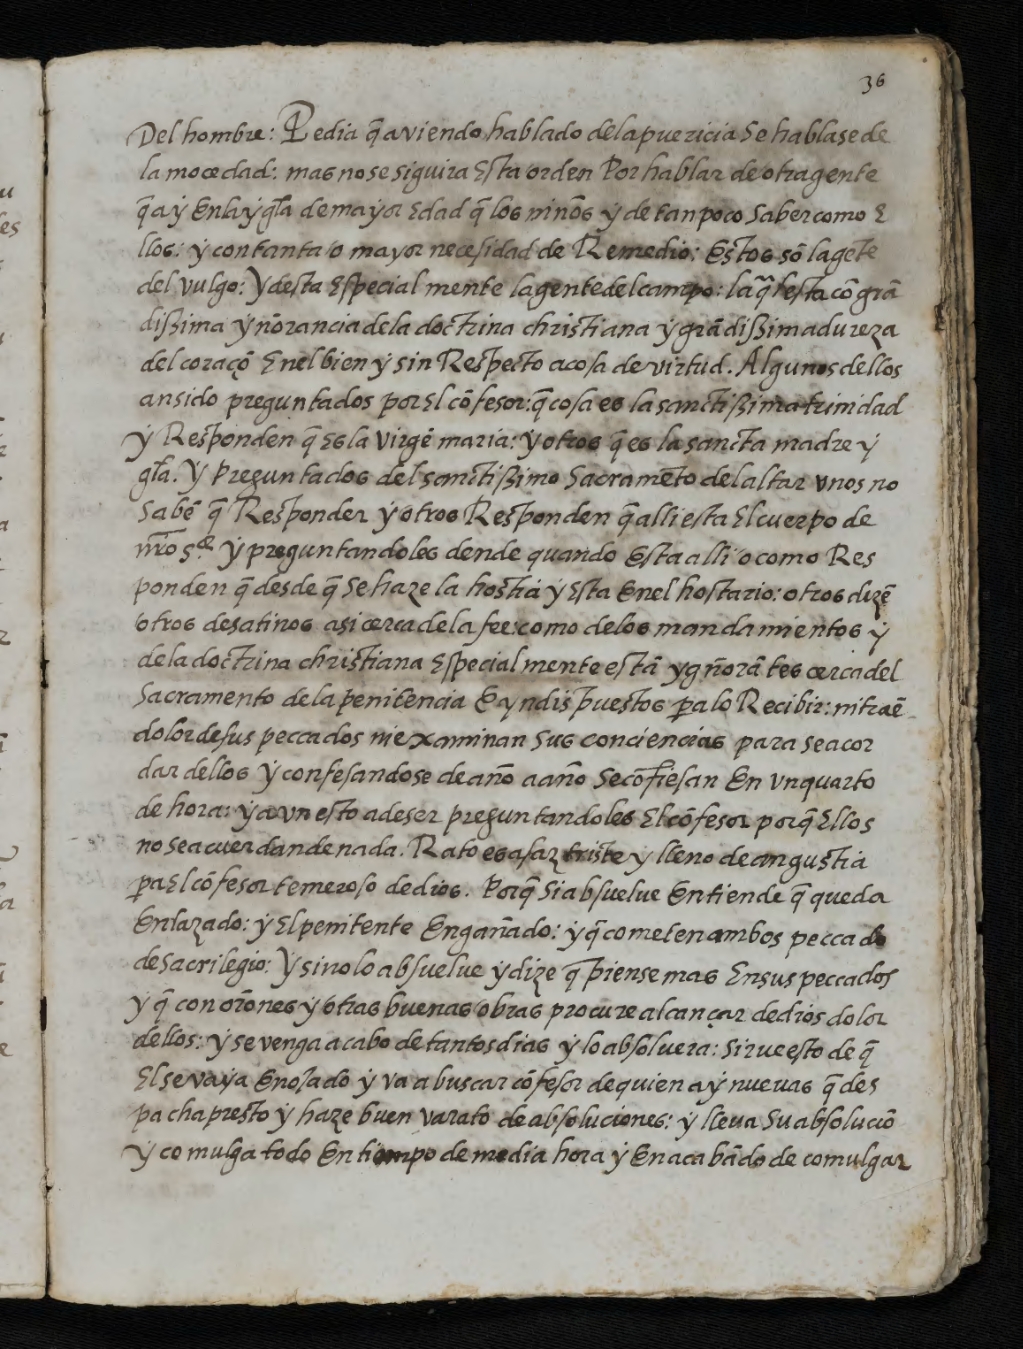 36
Del hombre: Pedia q̃ aviendo hablado dela puericia se hablase de
la mocedad: mas no se siguira esta orden Por hablar de otra gente
q̃ aẏ enla ẏgl̃a de maẏor edad q̃ los ninõs ẏ de tan poco saber como e
llos: ẏ con tanta o mayor necesidad de Remedio: Estos sõ la gẽte
del vulgo: Y desta especial mente la gente del campo: la q̃l esta cõ grã
dißima ẏñorancia de la doctrina christiana ẏ grãdißima dureza
del coraçõ enel bien ẏ sin Respecto a cosa de virtud. Algunos dellos
an sido preguntados por el cõfesor: q̃ cosa es la sanctißima trinidad
ẏ Responden q̃ es la virgẽ maria: ẏ otros q̃ es la sancta madre ẏ
gl̃a. Ẏ Preguntados del sanctißimo Sacramẽto del altar vnos no
Sabẽ q̃ Responder ẏ otros Responden q̃ alli esta el cuerpo de
nr̃o s.or ẏ preguntandoles dende quando esta alli o como Res
ponden q̃ desde q̃ se haze la hostia ẏ esta enel hostario: otros dizẽ
otros desatinos asi cerca de la fee: como delos mandamientos ẏ
de la doctrina christiana especial mente estã ygñorãtes cerca del
Sacramento de la penitencia E yndispuestos p̃a lo Recibir: ni traẽ
dolor de sus peccados ni examinan sus conciencias para se acor
dar dellos ẏ confesandose de año a año se cõfiesan en vn quarto
de hora: ẏ a vn esto a de ser preguntandoles el cõfesor porq̃ ellos
no se acuerdan de nada. Rato es asaz triste y lleno de angustia
p̃a el cõfesor temeroso de dios. Porq̃ si absuelue entiende q̃ queda
enlazado: ẏ el penitente engañado: ẏ q̃ cometen ambos peccado
de sacrilegio: Ẏ si no lo absuelue ẏ dize q̃ piense mas en sus peccados
ẏ q̃ con orõnes ẏ otras buenas obras procure alcançar de dios dolor
dellos: ẏ se venga a cabo de tantos dias ẏ lo absoluera: sirue esto de q̃
el se vaẏa enojado ẏ va a buscar cõfesor de quien aẏ nuevas q̃ des
pacha presto ẏ haze buen varato de absoluciones: ẏ lleva su absoluciõ
ẏ comulga todo en tiempo de media hora ẏ en acabãdo de comulgar